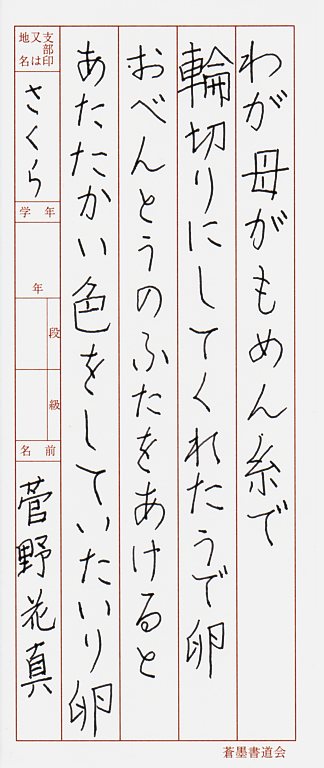 わが母がもめん糸で
輪切りにしてくれたうで卵
おべんとうのふたをあけると
あたたかい色をしていたいり卵
支部印
又は
地名
さくら
学年
年
段
級
名前
菅野花真
蒼墨書道会